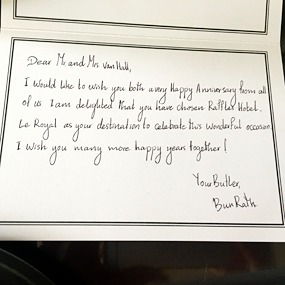 Dear Mr. and Mrs Van Hall,
I would like to wish you both a very Happy Anniversary from all
of us I am delighted that you have chosen Raffles Hotel
Le Royal as your destination to celebrate this wonderful occasion
I wish you many more happy years together!
Your Butler,
Bun Rath